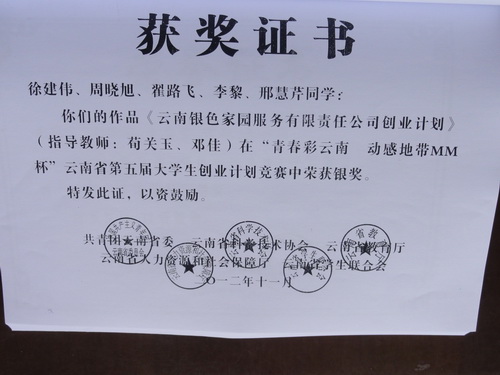 获奖证书
徐建伟、周晓旭、翟路飞、李黎、邢慧芹同学：
你们的作品《云南银色家园服务有限责任公司创业计划》
（指导教师：荀关玉、邓佳）在“青春彩云南 动感地带MM
杯”云南省第五届大学生创业计划竞赛中荣获银奖。
特发此证，以资鼓励。
共青团云南省委 云南省科学技术协会 云南省教育厅
云南省人力资源和社会保障厅 云南省学生联合会
二〇一二年十一月